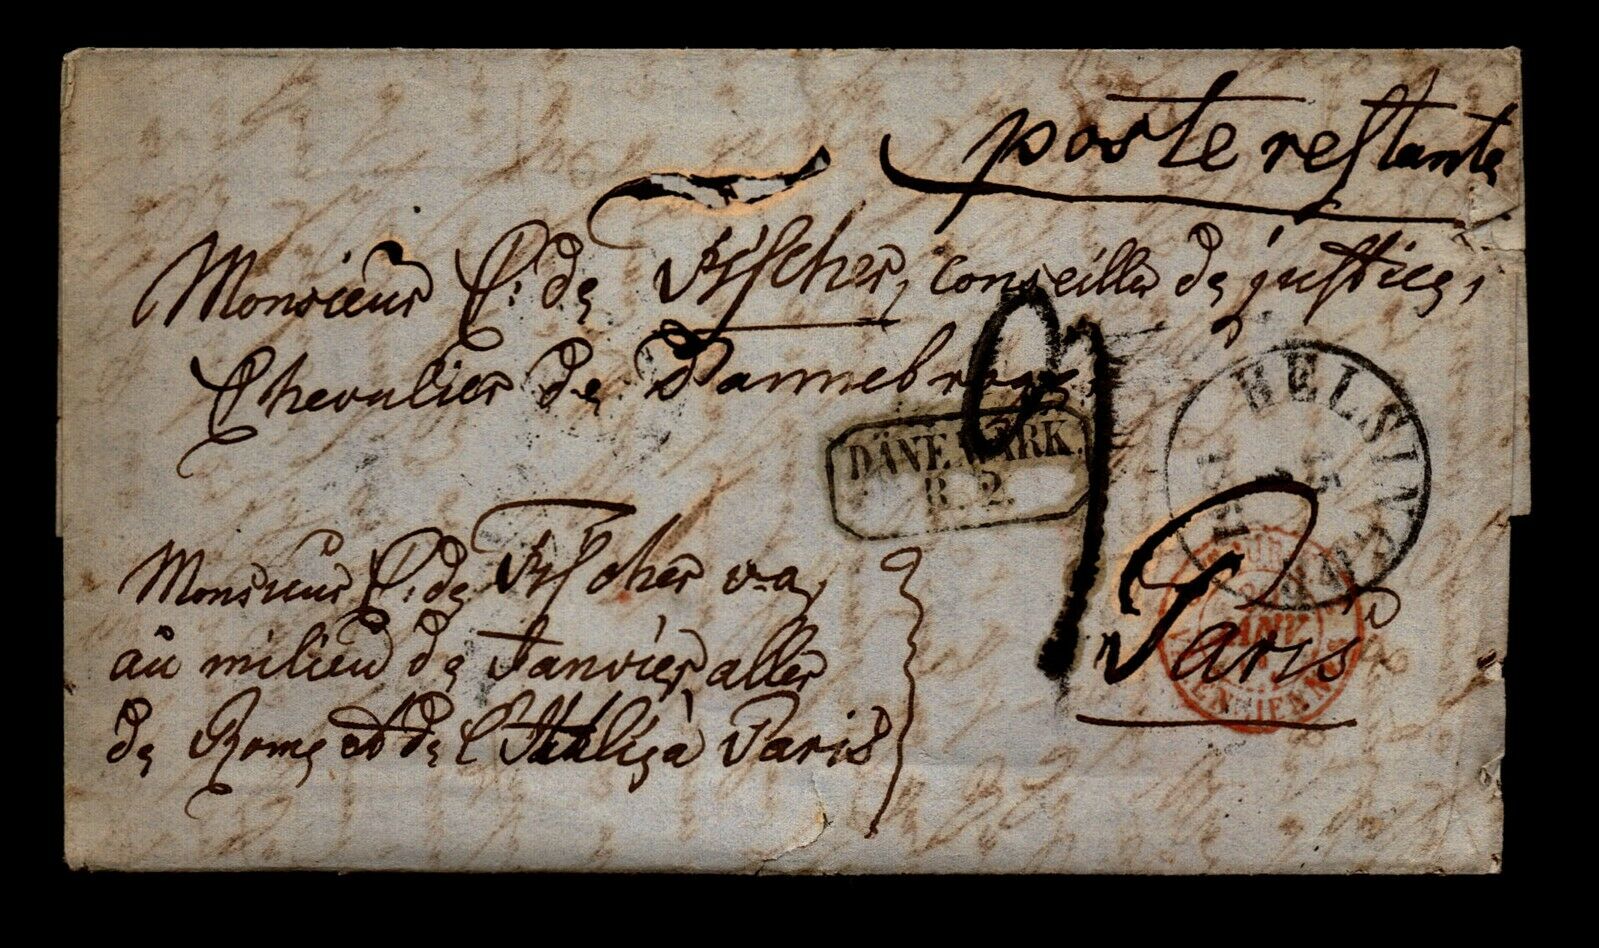 poste restante
Monsieur C: de Fischer, conseiller de justice,
Chevalier de Dannebrog,
DÄNEMARK.
R. 2.
HELSIN
Paris
ANV
Monsieur C: de Fischer va,
au milieu de Janvier aller
de Rome et de l'Italie à Paris